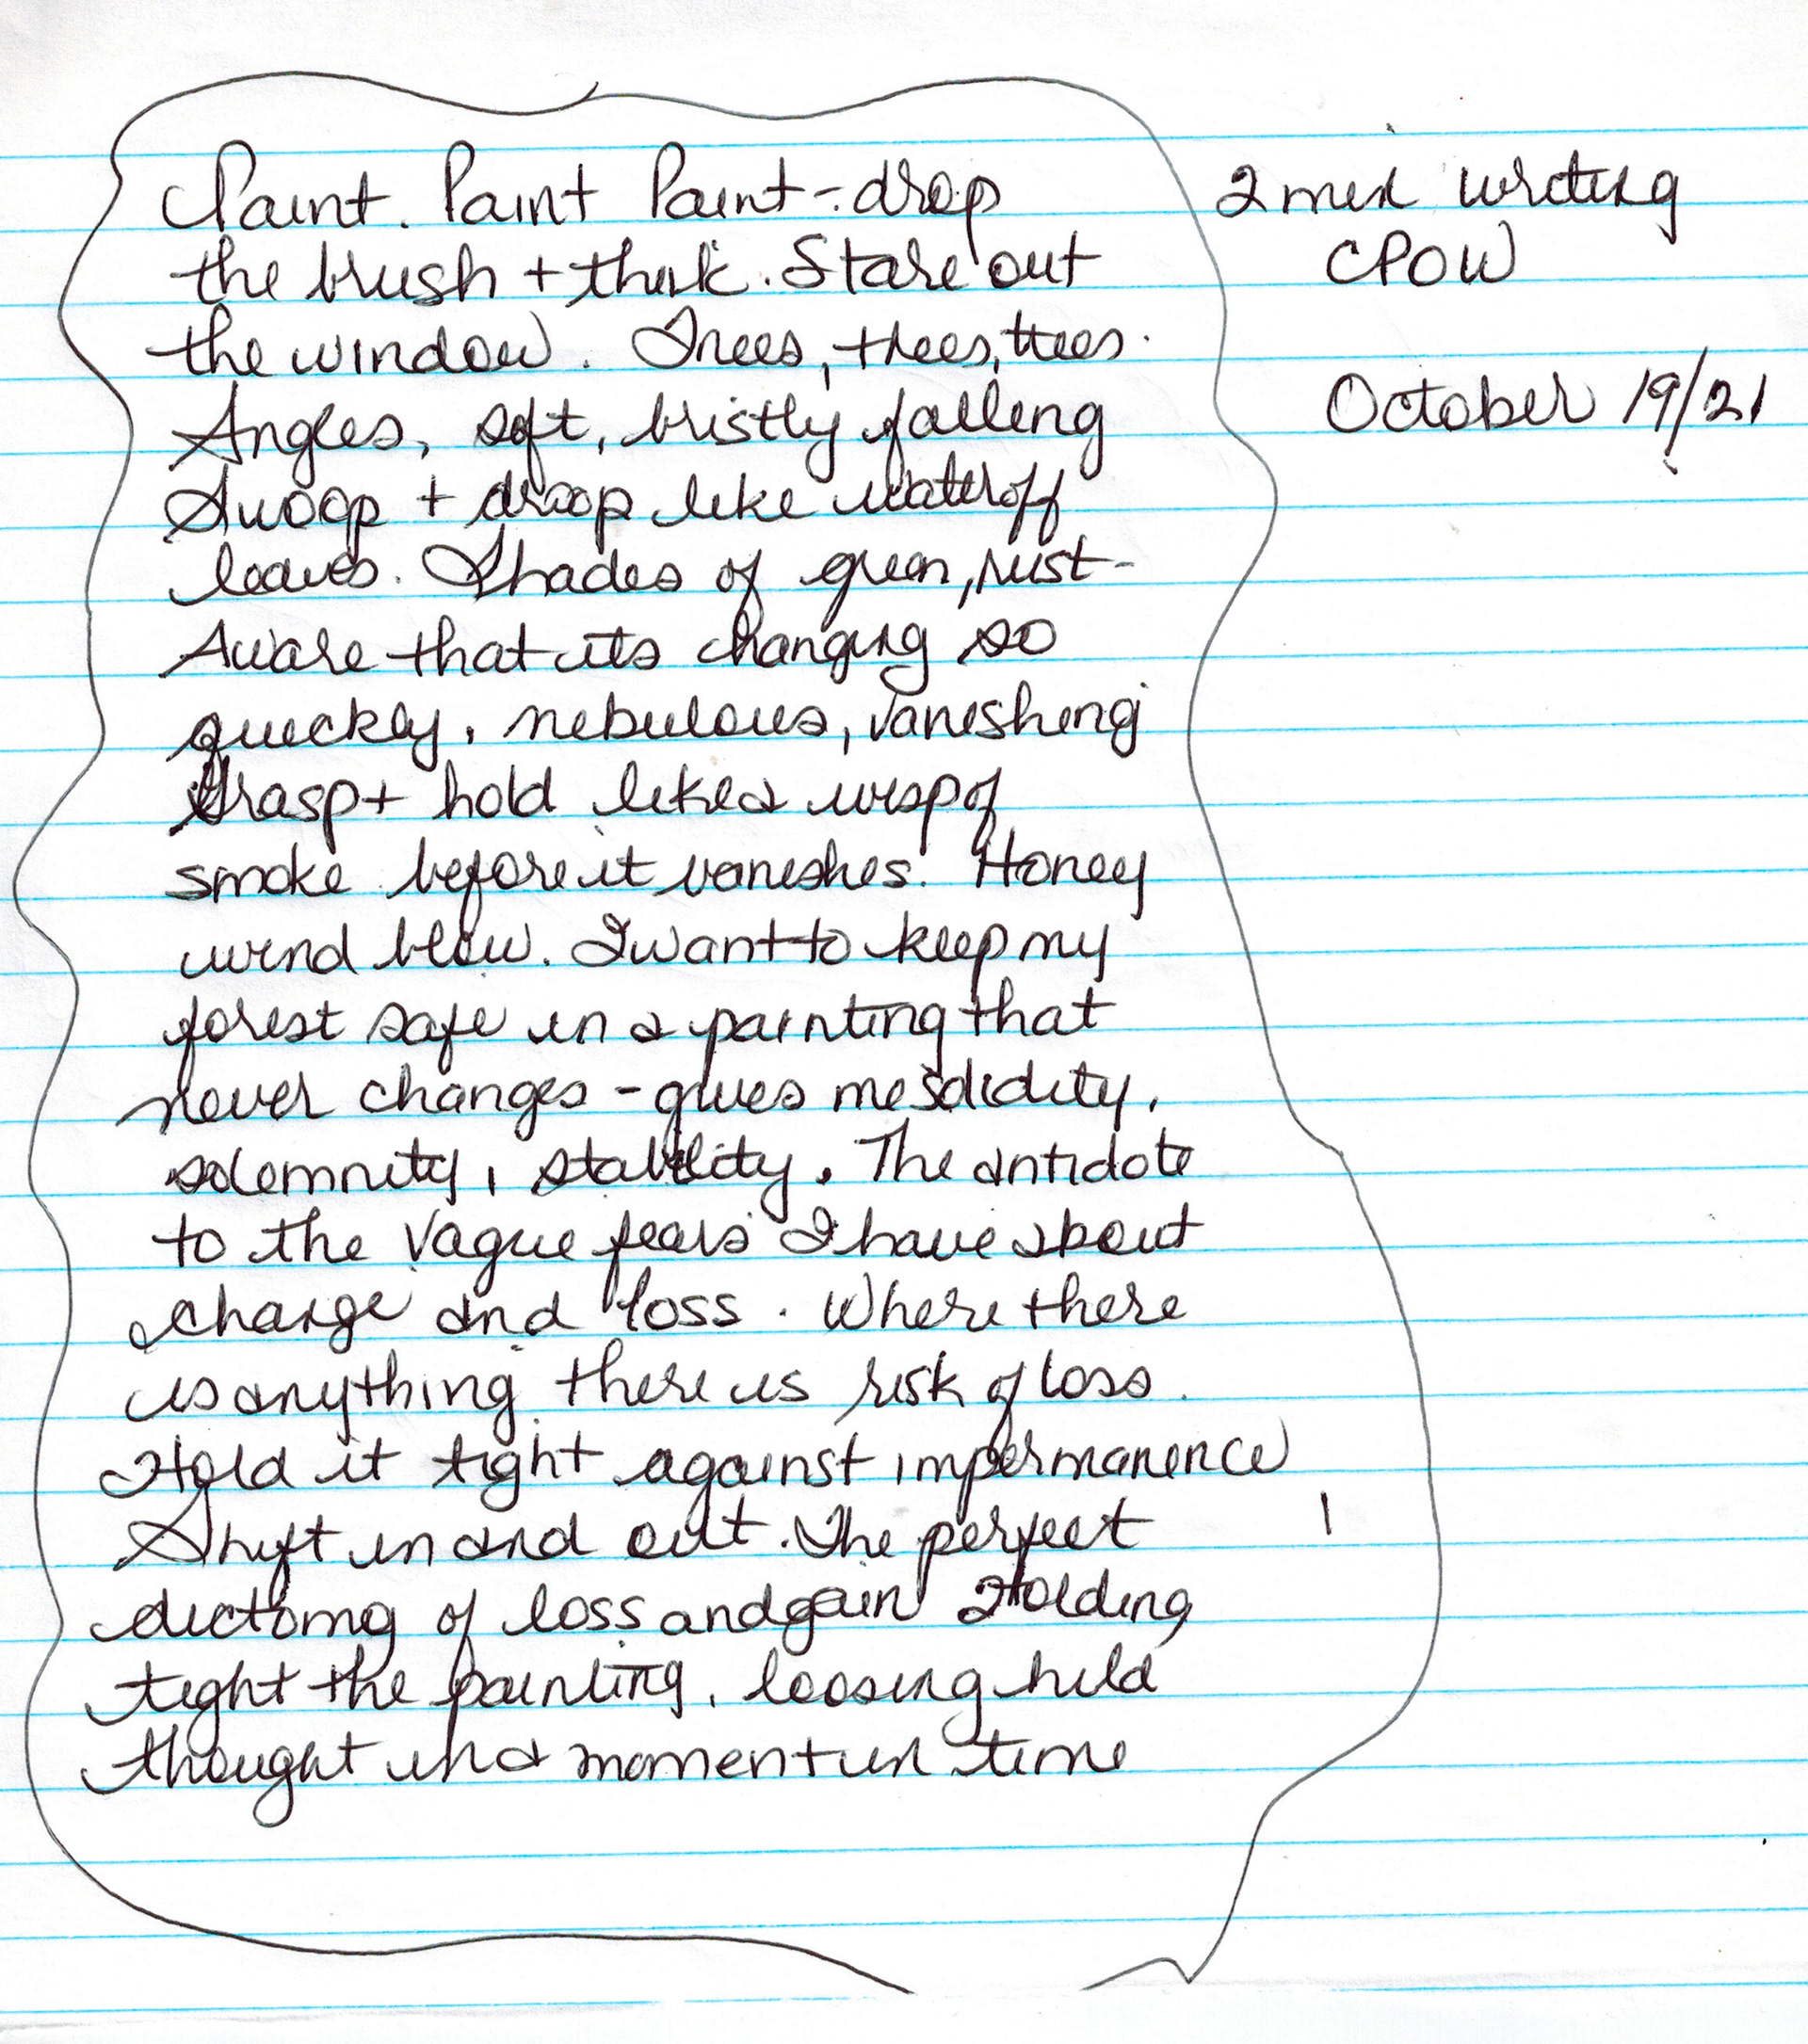 Paint. Paint Paint-: drop
the brush + think. Stare out
the window. Trees, trees, trees.
Angles, soft, bristly falling
Swoop + droop like water off
leaves. Shades of green, rust-
Aware that its changing so
quickly, nebulous, vanishing
Grasp + hold like a wisp of
smoke before it vanishes. Honey
wind blow. I want to keep my
forest safe in a painting that
never changes - gives me solidity,
solemnity, stability. The antidote
to the vague fears I have about
change and loss. Where there
is anything there is risk of loss.
Hold it tight against impermanence
Shift in and out. The perfect
dictomy of loss and gain Holding
tight the painting, loosing held
thought in a moment in time
2 min writing
CPOW
October 19/21